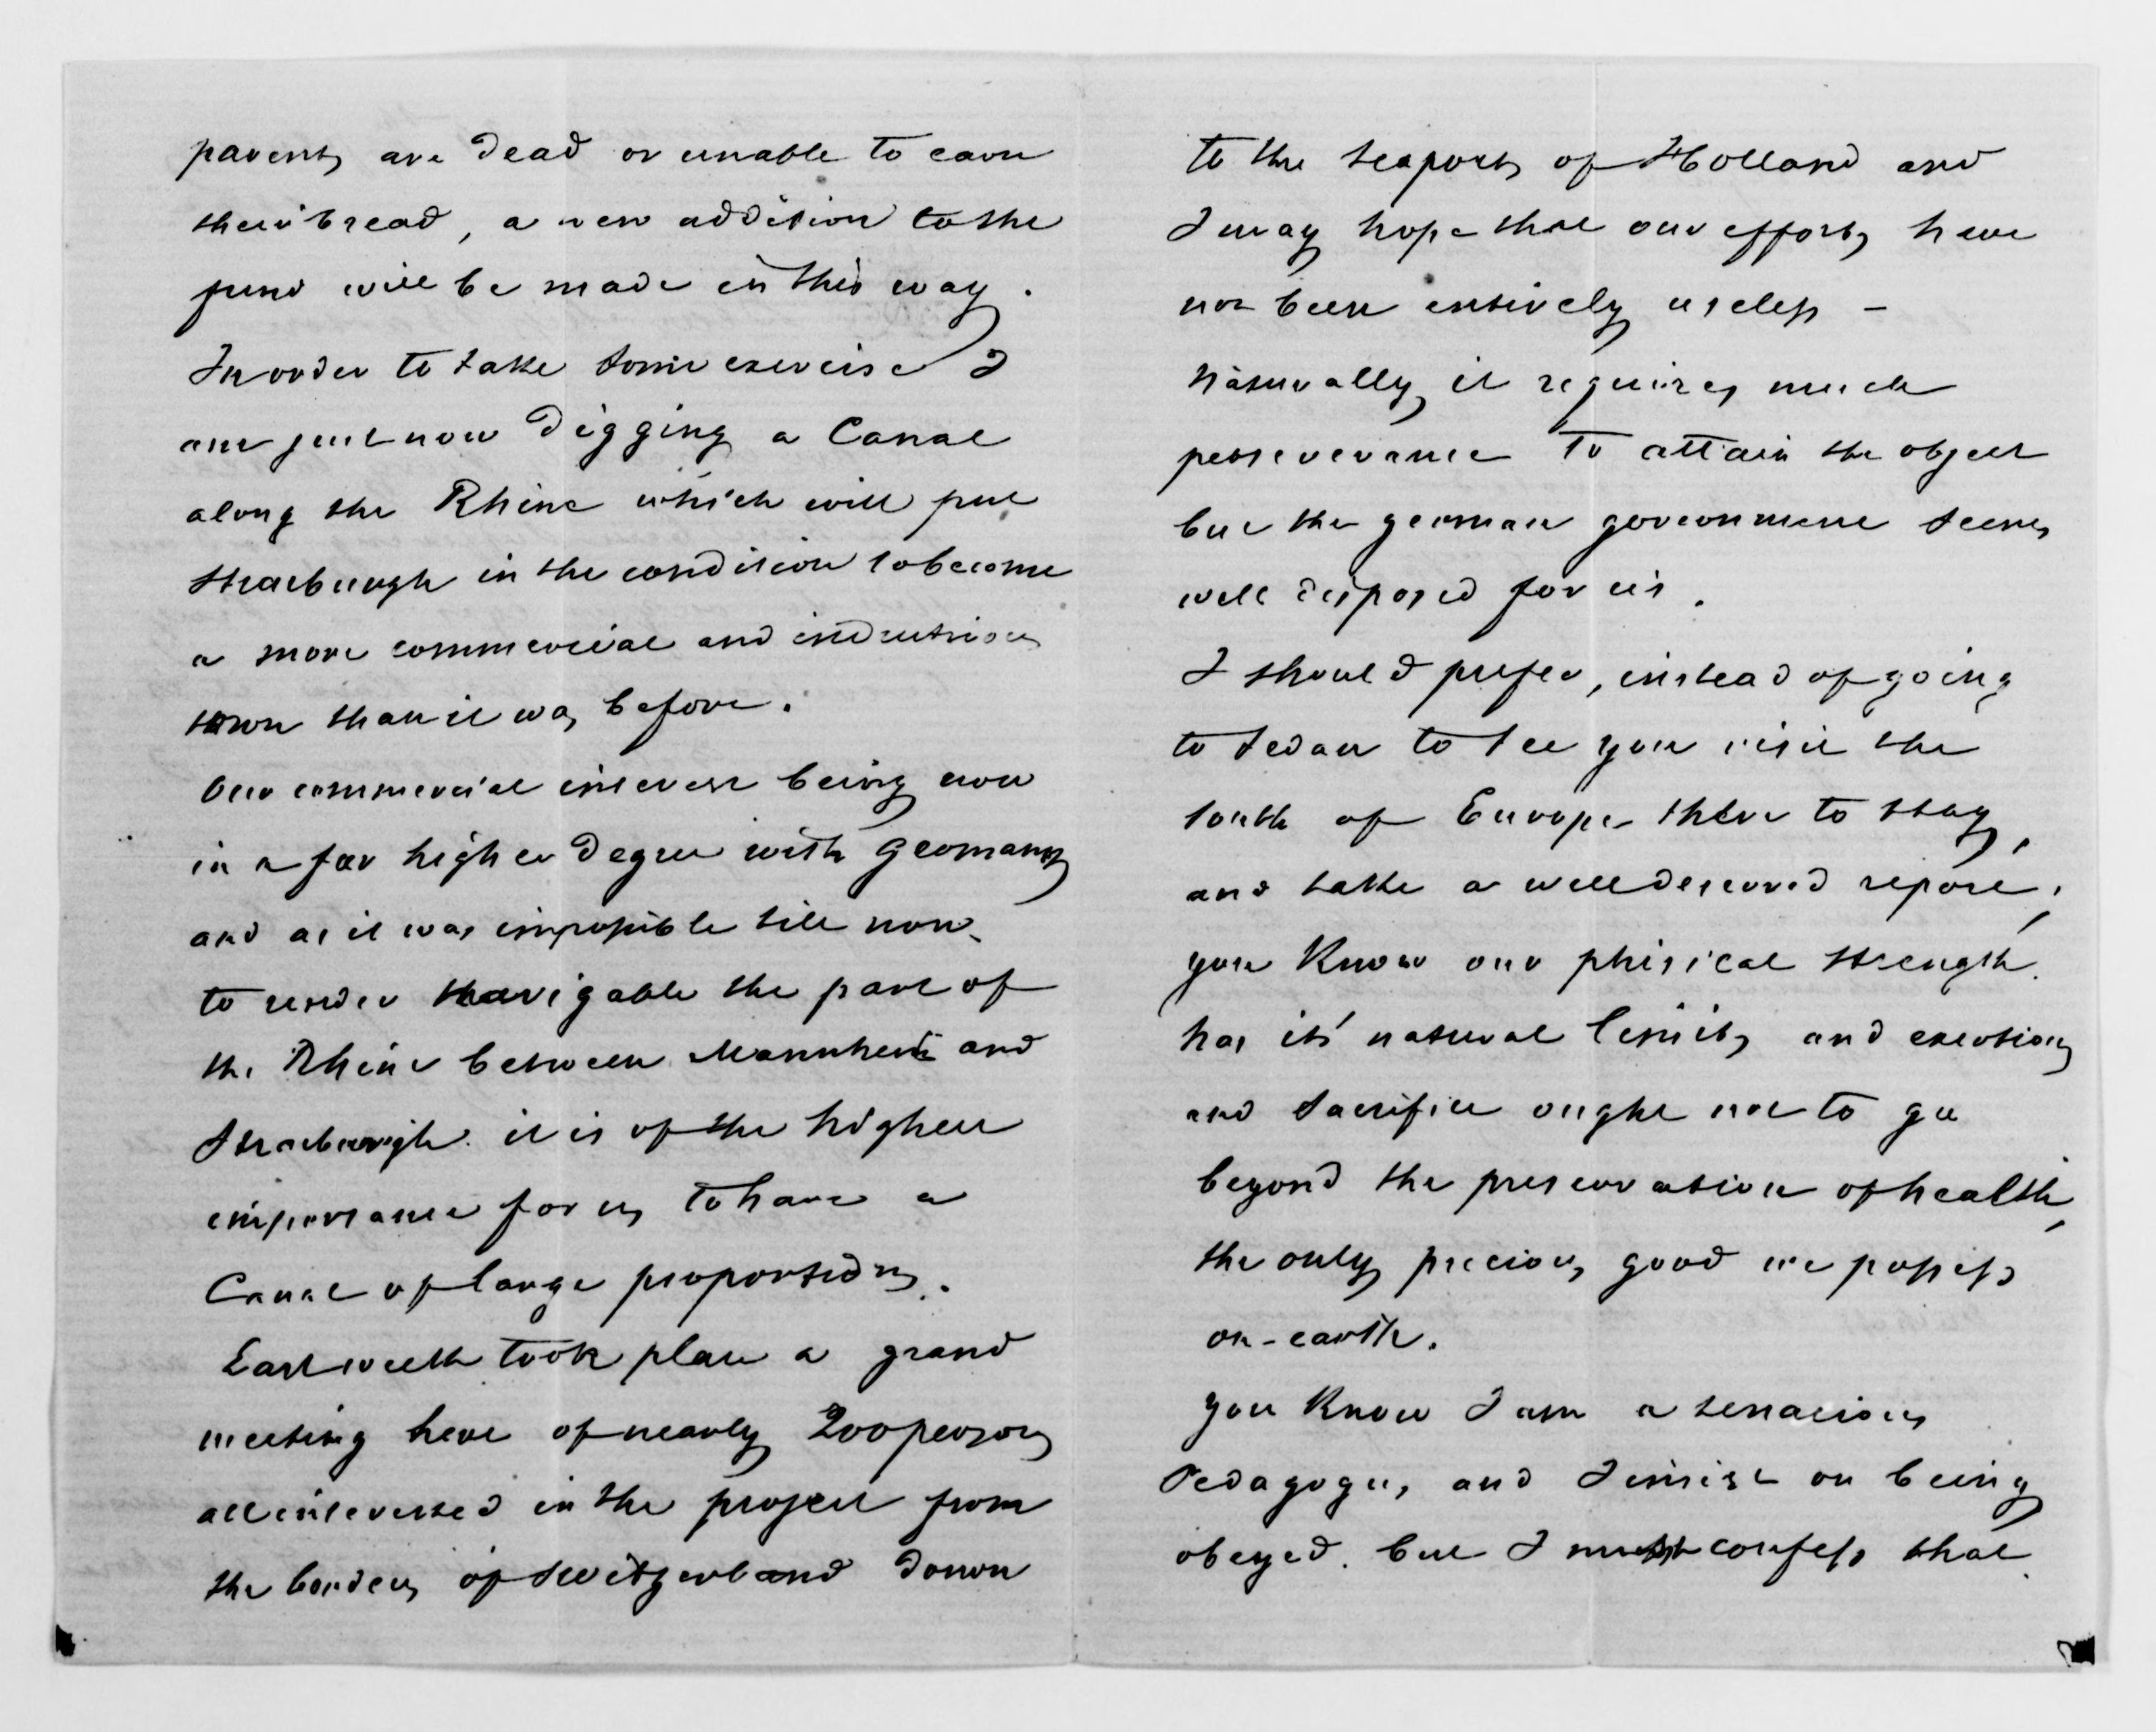 parents are dead or unable to earn
their bread, a new addition to the
fund will be made in this way.
In order to take some exercise I
am just now digging a Canal
along the Rhine which will put
Strasburgh in the condition to become
a more commercial and industrious
town than it was before.
Our commercial interest being now
in a far higher degree with Germany
and as it was impossible till now
to render navigable the part of
the Rhine between Mannheim and
Strasburgh it is of the highest
importance for us to have a
Canal of large proportions.
Last week took place a grand
meeting here of nearly 200 persons
all interested in the project from
the borders of Switzerland down
to the seaports of Holland and
I may hope that our efforts have
not been entirely useless -
Naturally it requires much
perseverance to attain the object
but the german government seems
well disposed for us.
I should prefer, instead of going
to Sedan to see you visit the
south of Europe there to stay,
and take a well deserved repose,
you Know our phisical strength
has its' natural limits and exertions
and sacrifice ought not to go
beyond the preservation of health,
the only precious good we possess
on-earth.
you Know I am a tenacious
Pedagogue, and I insist on being
obeyed. but I must confess that